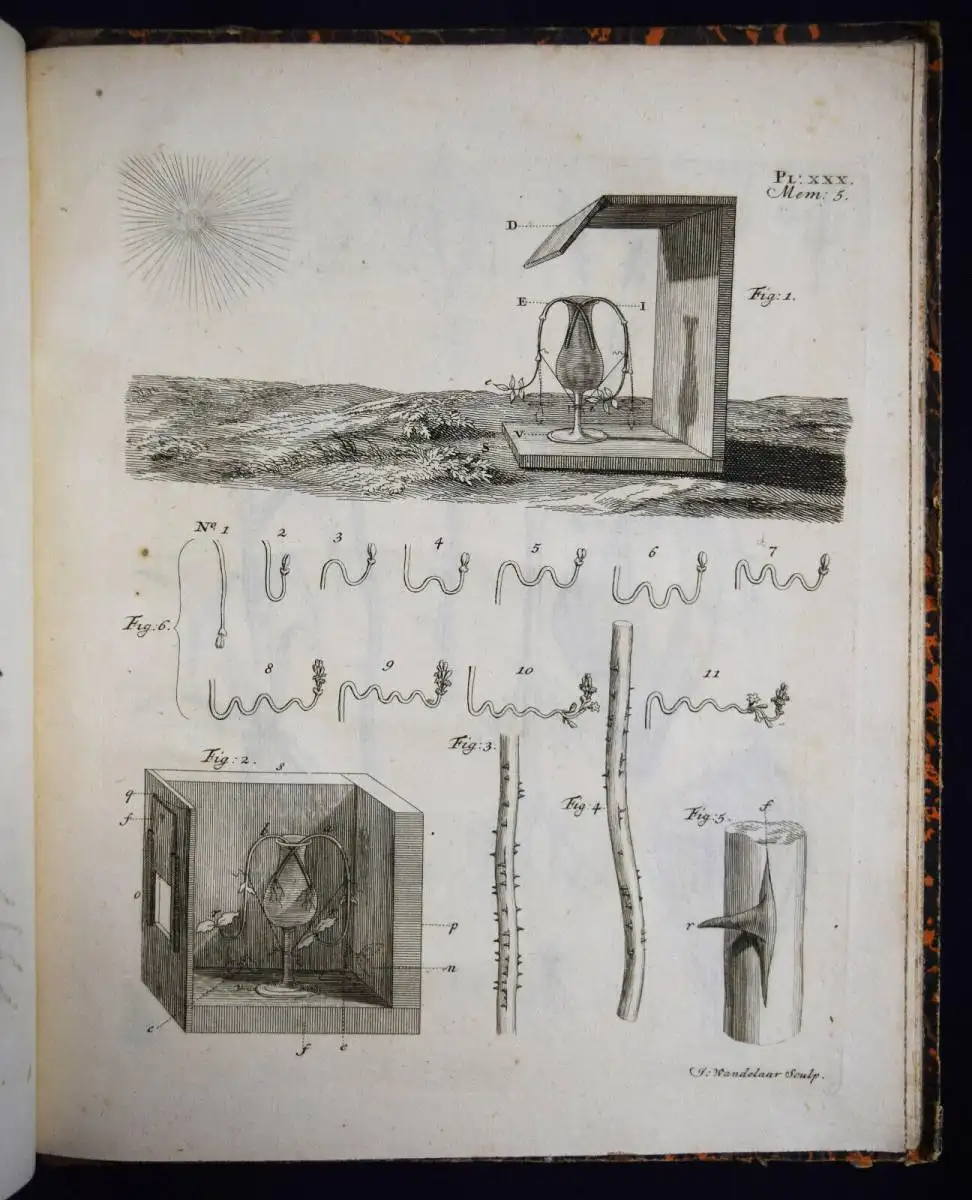 Pl: XXX.
Mem: 5.
D
Fig: 1.
E I
V
S
Nº. 1 2 3 4 5 6 7
Fig: 6.
8 9 10 11
Fig: 2. Fig: 3. Fig: 4 Fig: 5.
s
q
f
b a
o
p
n
c
f e
f
r
J: Wandelaar Sculp.